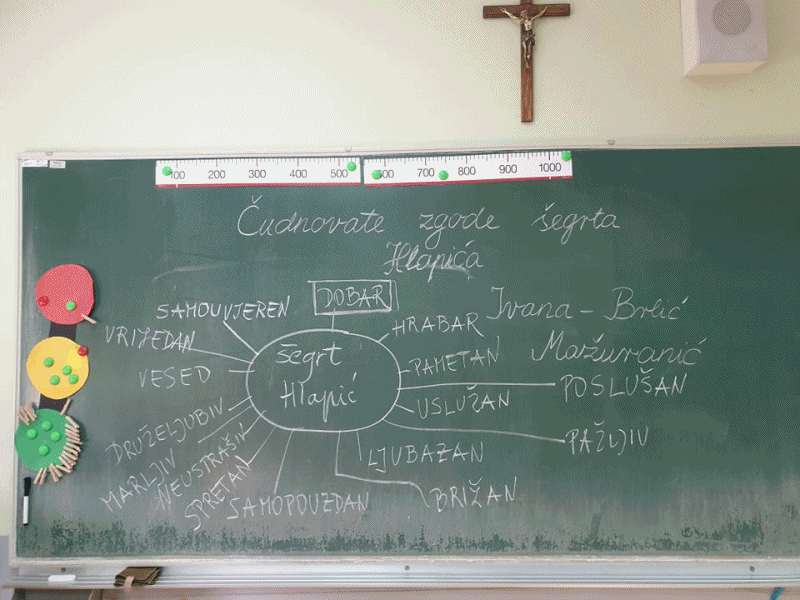 100 200 300 400 500 600 700 800 900 1000
Čudnovate zgode šegrta
Hlapića
Ivana - Brlić
Mažuranić
šegrt
Hlapić
DOBAR
HRABAR
PAMETAN
POSLUŠAN
USLUŽAN
PAŽLJIV
LJUBAZAN
BRIŽAN
SAMOPOUZDAN
SPRETAN
NEUSTRAŠIV
MARLJIV
DRUŽELJUBIV
VESEO
VRIJEDAN
SAMOUVJEREN